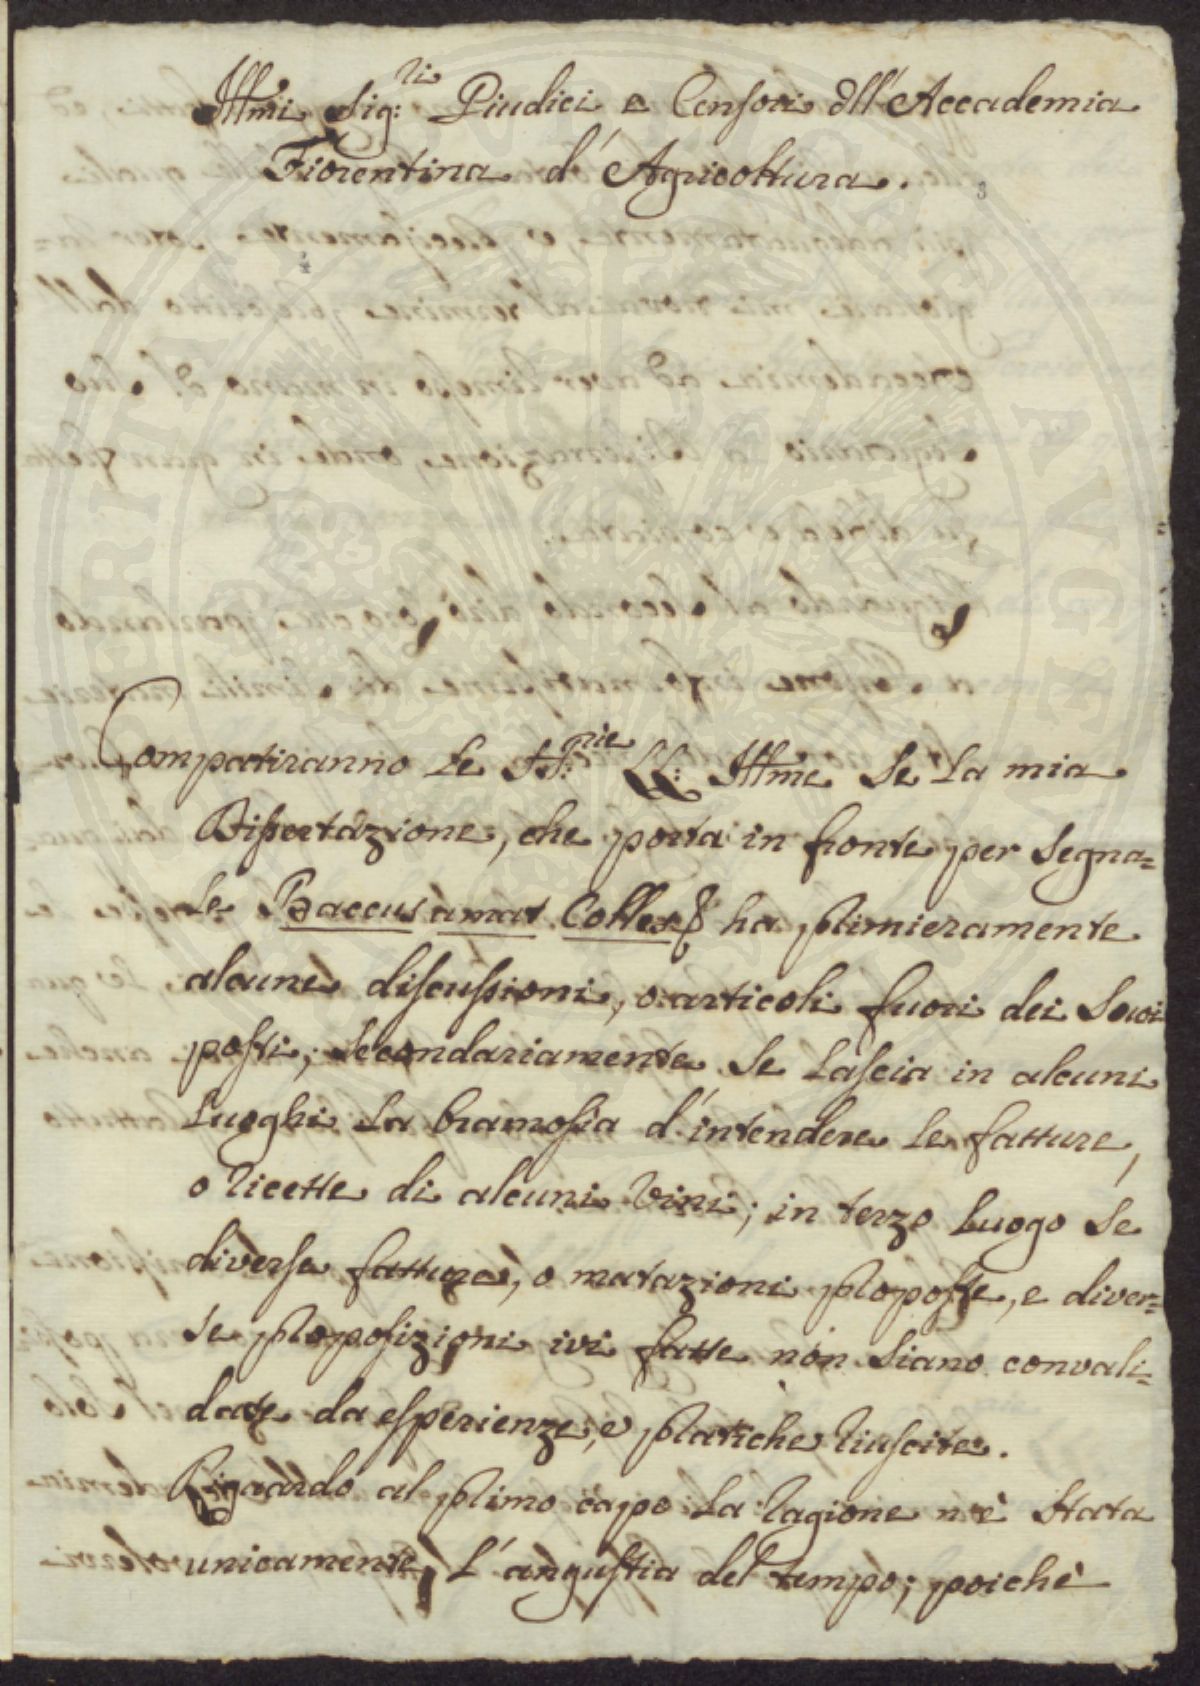 Illmi Sig:ri Giudici e Censori dell'Accademia
Fiorentina d'Agricoltura.
3
4
Compatiranno le SS:rie LL: Illme se la mia
Dissertazione, che porta in fronte per segna=
le Baccus amat Colles ha primieramente
alcune discussioni, o articoli fuori dei suoi
posti; secondariamente se lascia in alcuni
luoghi la bramosia d'intendere le fatture,
o ricette di alcuni Vini; in terzo luogo se
diverse fatture, o mutazioni proposte, e diver=
se proposizioni ivi fatte non siano convali=
date da esperienze, e pratiche riuscite.
Riguardo al primo capo la ragione n'è stata
unicamente l'angustia del tempo; poichè